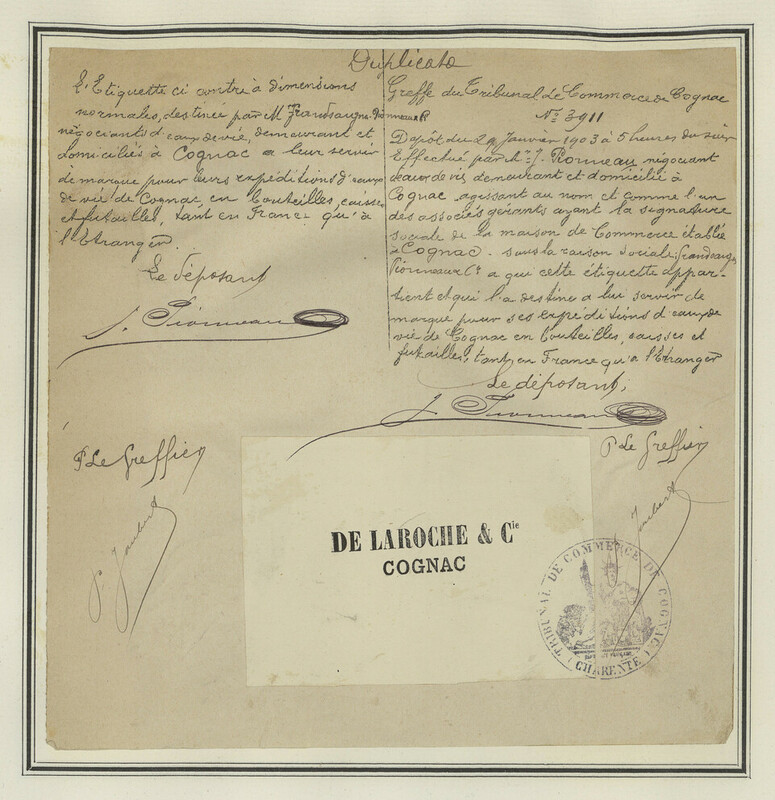 Duplicata
L'Etiquette ci contre à dimensions
normales, destinée par M. Frandsaigne Pionneau &
négociants d'eaux de vie, demeurant et
domiciliés à Cognac a leur servir
de marque pour leurs expéditions d'eaux
de vie de Cognac, en bouteilles, caisses
et futailles, tant en France qu'à
l'Etranger.
Le déposant
J. Pionneau
P Le Greffier
P. Joubert
Greffe du Tribunal de Commerce de Cognac
No 3911
Dépôt du 29 Janvier 1903 à 5 heures du soir
Effectué par Mr J. Pionneau négociant
d'eaux de vie, demeurant et domicilié à
Cognac, agissant au nom et comme l'un
des associés gérants ayant la signature
sociale de la maison de Commerce établie
à Cognac. sous la raison sociale,
Pionneau & Ce a qui cette étiquette appar-
tient et qui l'a destine a lui servir de
marque pour ses expéditions d'eaux de
vie de Cognac en bouteilles, caisses et
futailles, tant en France qu'a l'Etranger
Le déposant,
J. Pionneau
P Le Greffier
Joubert
DE LAROCHE & Cie
COGNAC
TRIBUNAL DE COMMERCE DE COGNAC
(CHARENTE)